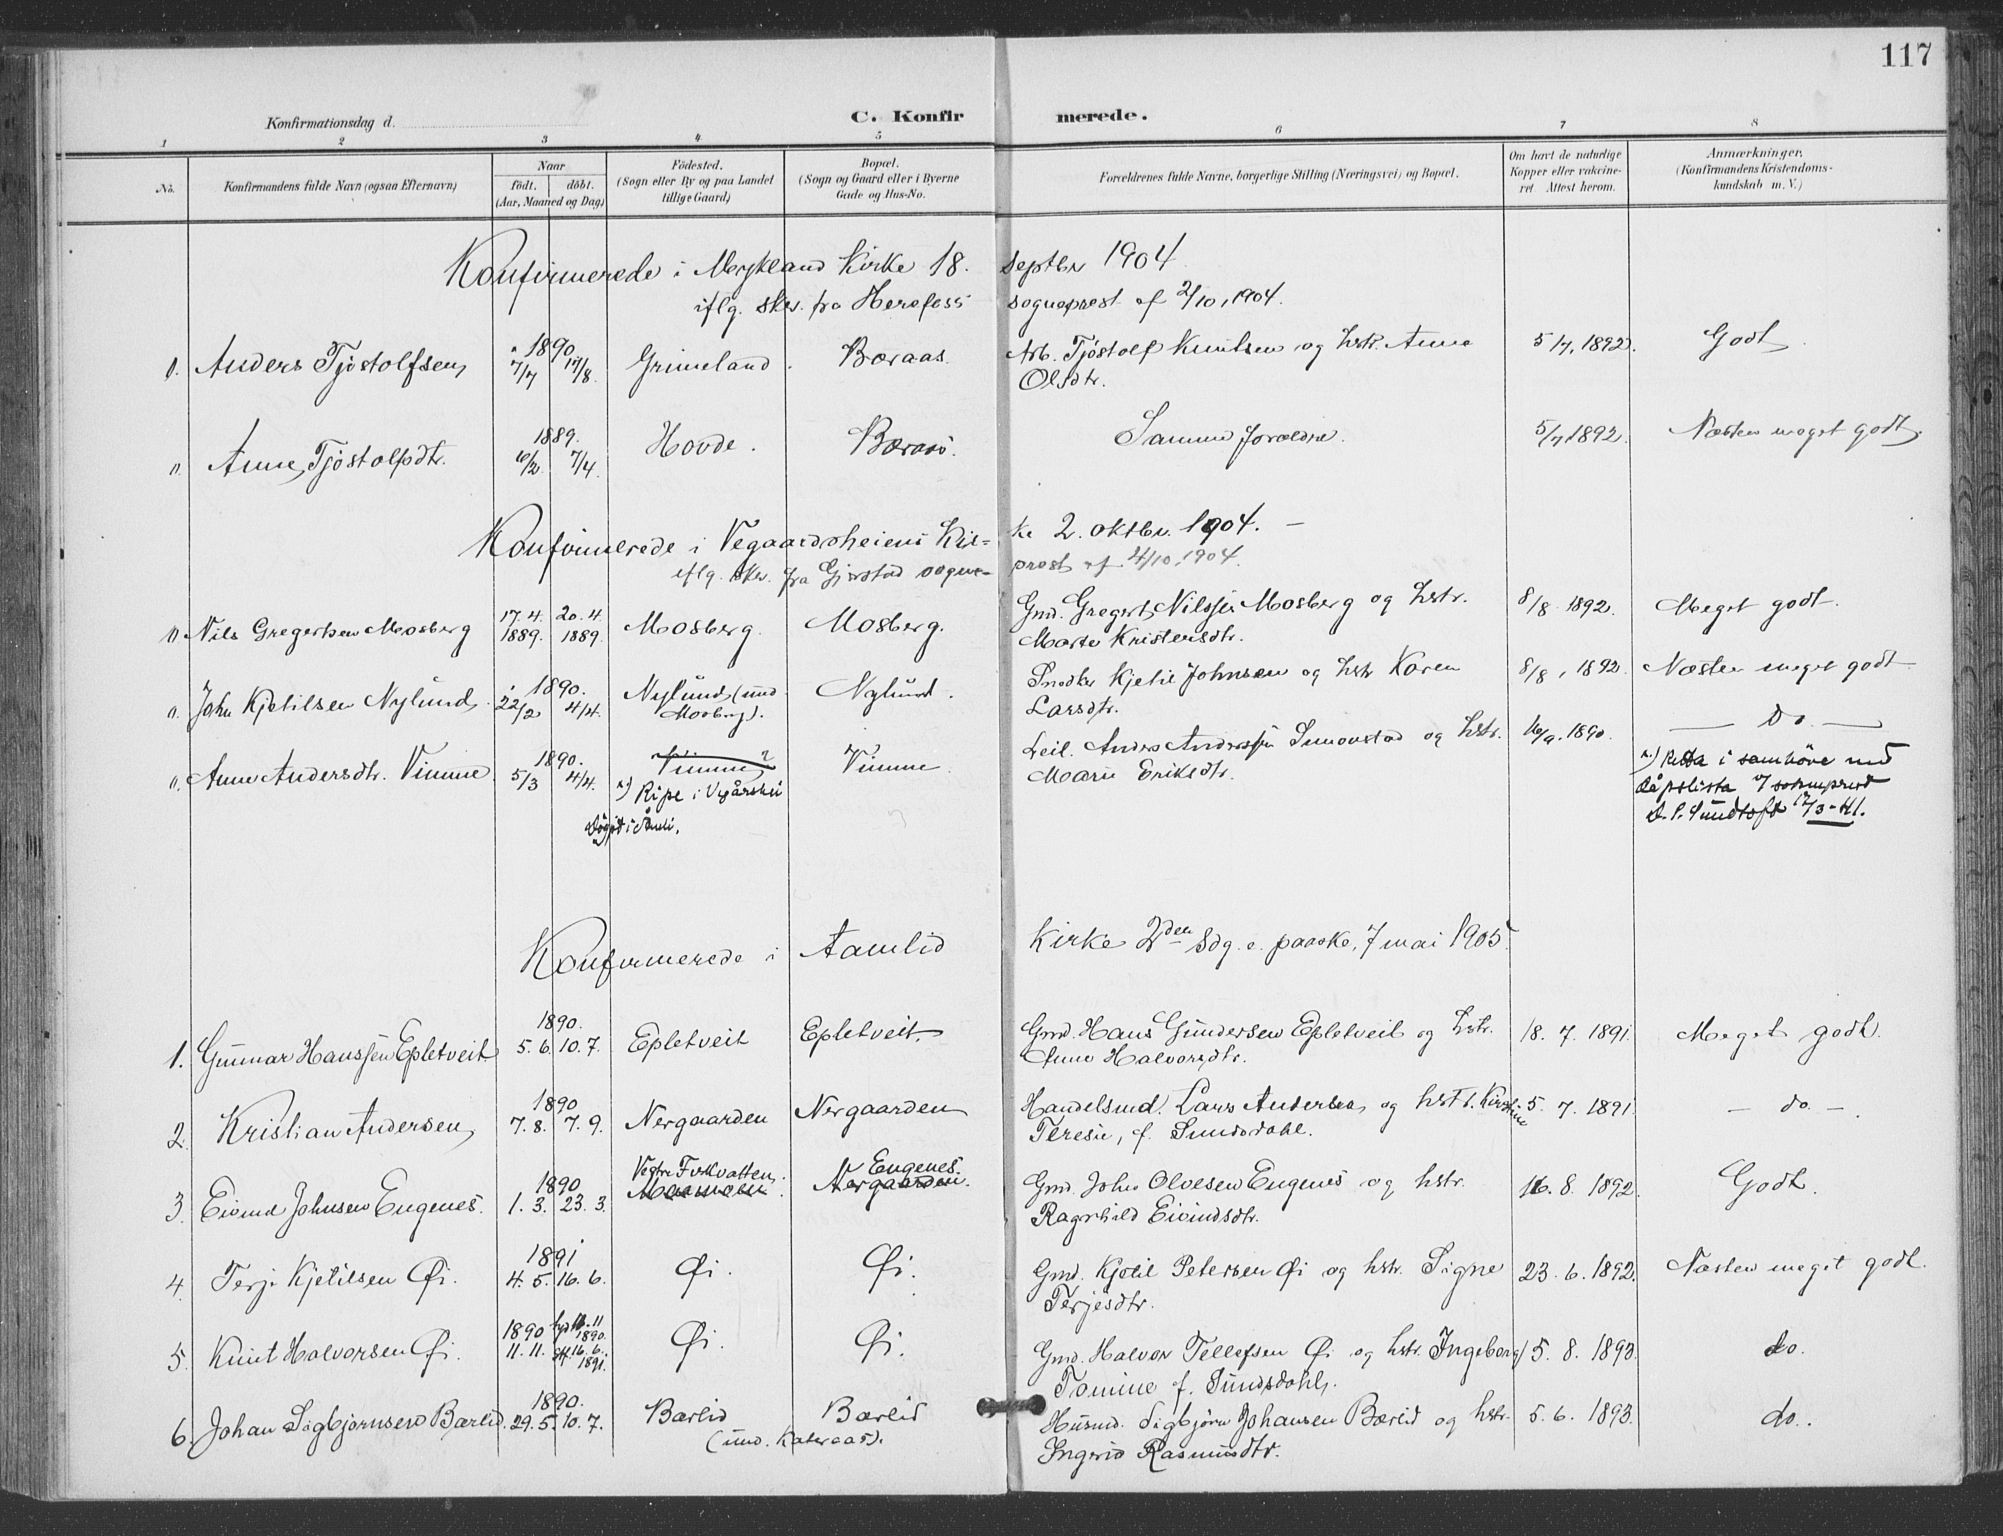 117
Konfirmationsdag d. C. Konfirmerede.
1 2 3 4 5 6 7 8
No. Konfirmandens fulde Navn (ogsaa Efternavn) Naar født. døbt. (Aar, Maaned og Dag) Fødested. (Sogn eller By og paa Landet tillige Gaard) Bopæl. (Sogn og Gaard eller i Byerne Gade og Hus-No. Forældrenes fulde Navne, borgerlige Stilling (Næringsvei) og Bopæl. Om havt de naturlige Kopper eller vakcineret. Attest herom. Anmærkninger. (Konfirmandens Kristendomskundskab m. V.)
Konfirmerede i Mykland Kirke 18. septbr 1904
iflg. skr. fra Herefoss sogneprest af 2/10, 1904.
Anders Tjøstolfsen 1890 7/7 17/8. Grimeland. Bæraas. Arb. Tjøstolf Knutsen og hstr. Anne 5/7, 1892. Godt.
Olsdtr.
Anne Tjøstolfsdtr. 1889. 10/2 7/4. Hovde. Bæraas. Samme forældre. 5/7 1892. Næsten meget godt.
Konfirmerede i Vegaardsheiens Kirke 2. oktbr. 1904. –
iflg. skr. fra Gjerstad sogneprest af 4/10, 1904.
Nils Gregertsen Mosberg 17. 4. 1889. 20. 4. 1889. Mosberg. Mosberg. Gmd. Gregert Nilssen Mosberg og hstr. 8/8 1892. Meget godt.
Marte Kristensdtr.
John Kjetilsen Nylund. 1890. 22/2 4/4. Nylund (und. Mosberg). Nylund. Snedker Kjetil Johnsen og hstr Karen 8/8, 1892. Næsten meget godt
Larsdtr.
Anne Andersdtr. Vimme. 1890. 5/3 4/4. Vimme? Vimme. Leil. Anders Anderssen Simonstad og hstr. 16/9. 1890. — Do. —
x) Ripe i Vegårshei Marie Eriksdtr. x) Retta i samhøve med
Døypt i Åmli. dåpslista / sokneprest
D. S. Sundtoft 17/3-41.
Konfirmerede i Aamlid Kirke 2den Sdg. e. paaske, 7 mai 1905.
1. Gunnar Hanssen Epletveit 1890. 5. 6. 10. 7. Epletveit Epletveit. Gmd. Hans Gundersen Epletveit og hstr. 18. 7. 1891. Meget godt.
Anne Halvorsdtr.
2. Kristian Andersen 1890 7. 8. 7. 9. Nergaarden Nergaarden Handelsmd. Lars Andersen og hstr. Kirstine 5. 7. 1891. – do. –
Teresie, f. Sundsdahl.
3. Eivind Johnsen Engenes. 1890 1. 3. 23. 3. Vegtn. Fiskvatten. Engenes. Nergaarden. Gmd. John Olvesen Engenes og hstr. 16. 8. 1892. Godt.
Ragnhild Eivindsdtr.
4. Terje Kjetilsen Øi. 1891 4. 5. 16. 6. Øi. Øi. Gmd. Kjetil Petersen Øi og hstr. Signe 23. 6. 1892. Næsten meget godt.
Terjesdtr.
5. Knut Halvorsen Øi. 1890 11. 11. hjd 16. 11 1890. stf. 16. 6. 1891. Øi. Øi. Gmd. Halvor Tellefsen Øi og hstr. Ingeborg 5. 8. 1893. do.
Tomine f. Sundsdahl.
6. Johan Sigbjørnsen Bærlid. 1890. 29. 5. 10. 7. Bærlid Bærlid Husmd. Sigbjørn Johansen Bærlid og hstr. 5. 6. 1893. do.
(und. Kateraas). Ingerid Rasmusdtr.